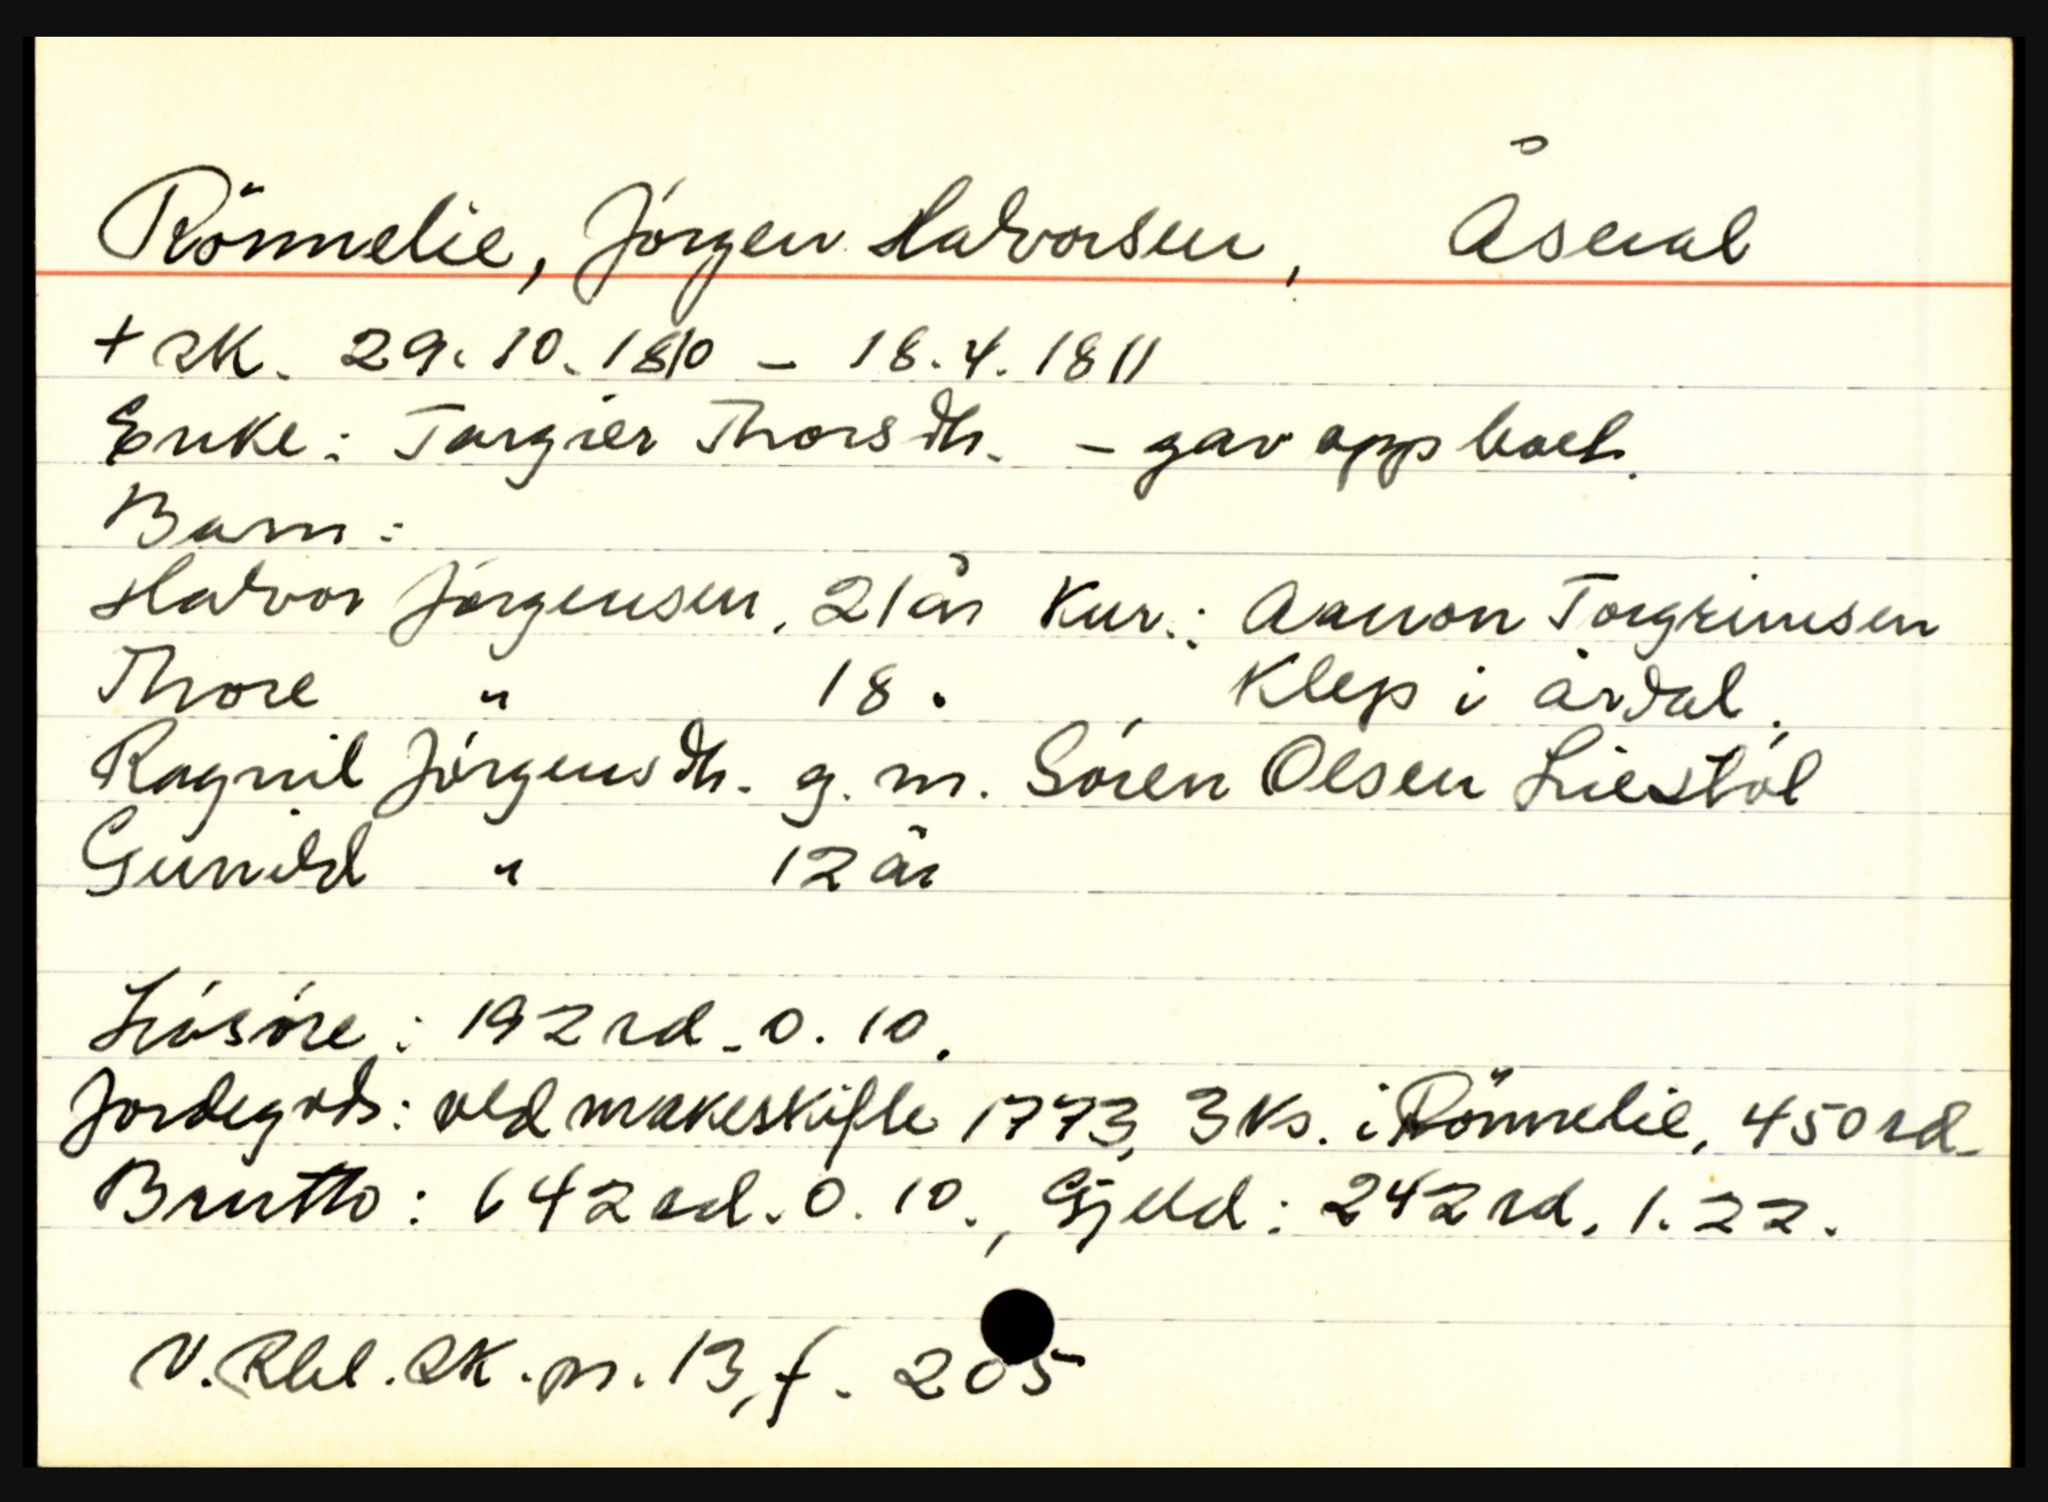 Rönnelie, Jörgen Halvorsen, Åseral
+ sk. 29.10.1810 - 18.4.1811
Enke: Targier Thorsdtr. - gav opp boet.
Barn:
Halvor Jörgensen, 21 år Kur.: Aanon Torgrimsen
Thore " 18. Klep i årdal.
Ragnil Jörgensdtr. g. m. Sören Olsen Liestöl
Gunild " 12 år
Lösöre: 192 rd. 0. 10.
Jordegods: ved makeskifte 1773, 3 ks. i Rönnelie, 450 rd.
Brutto: 642 rd. 0. 10., Gjeld: 242 rd. 1. 22.
V. Rbl. sk. pr. 13, f. 205